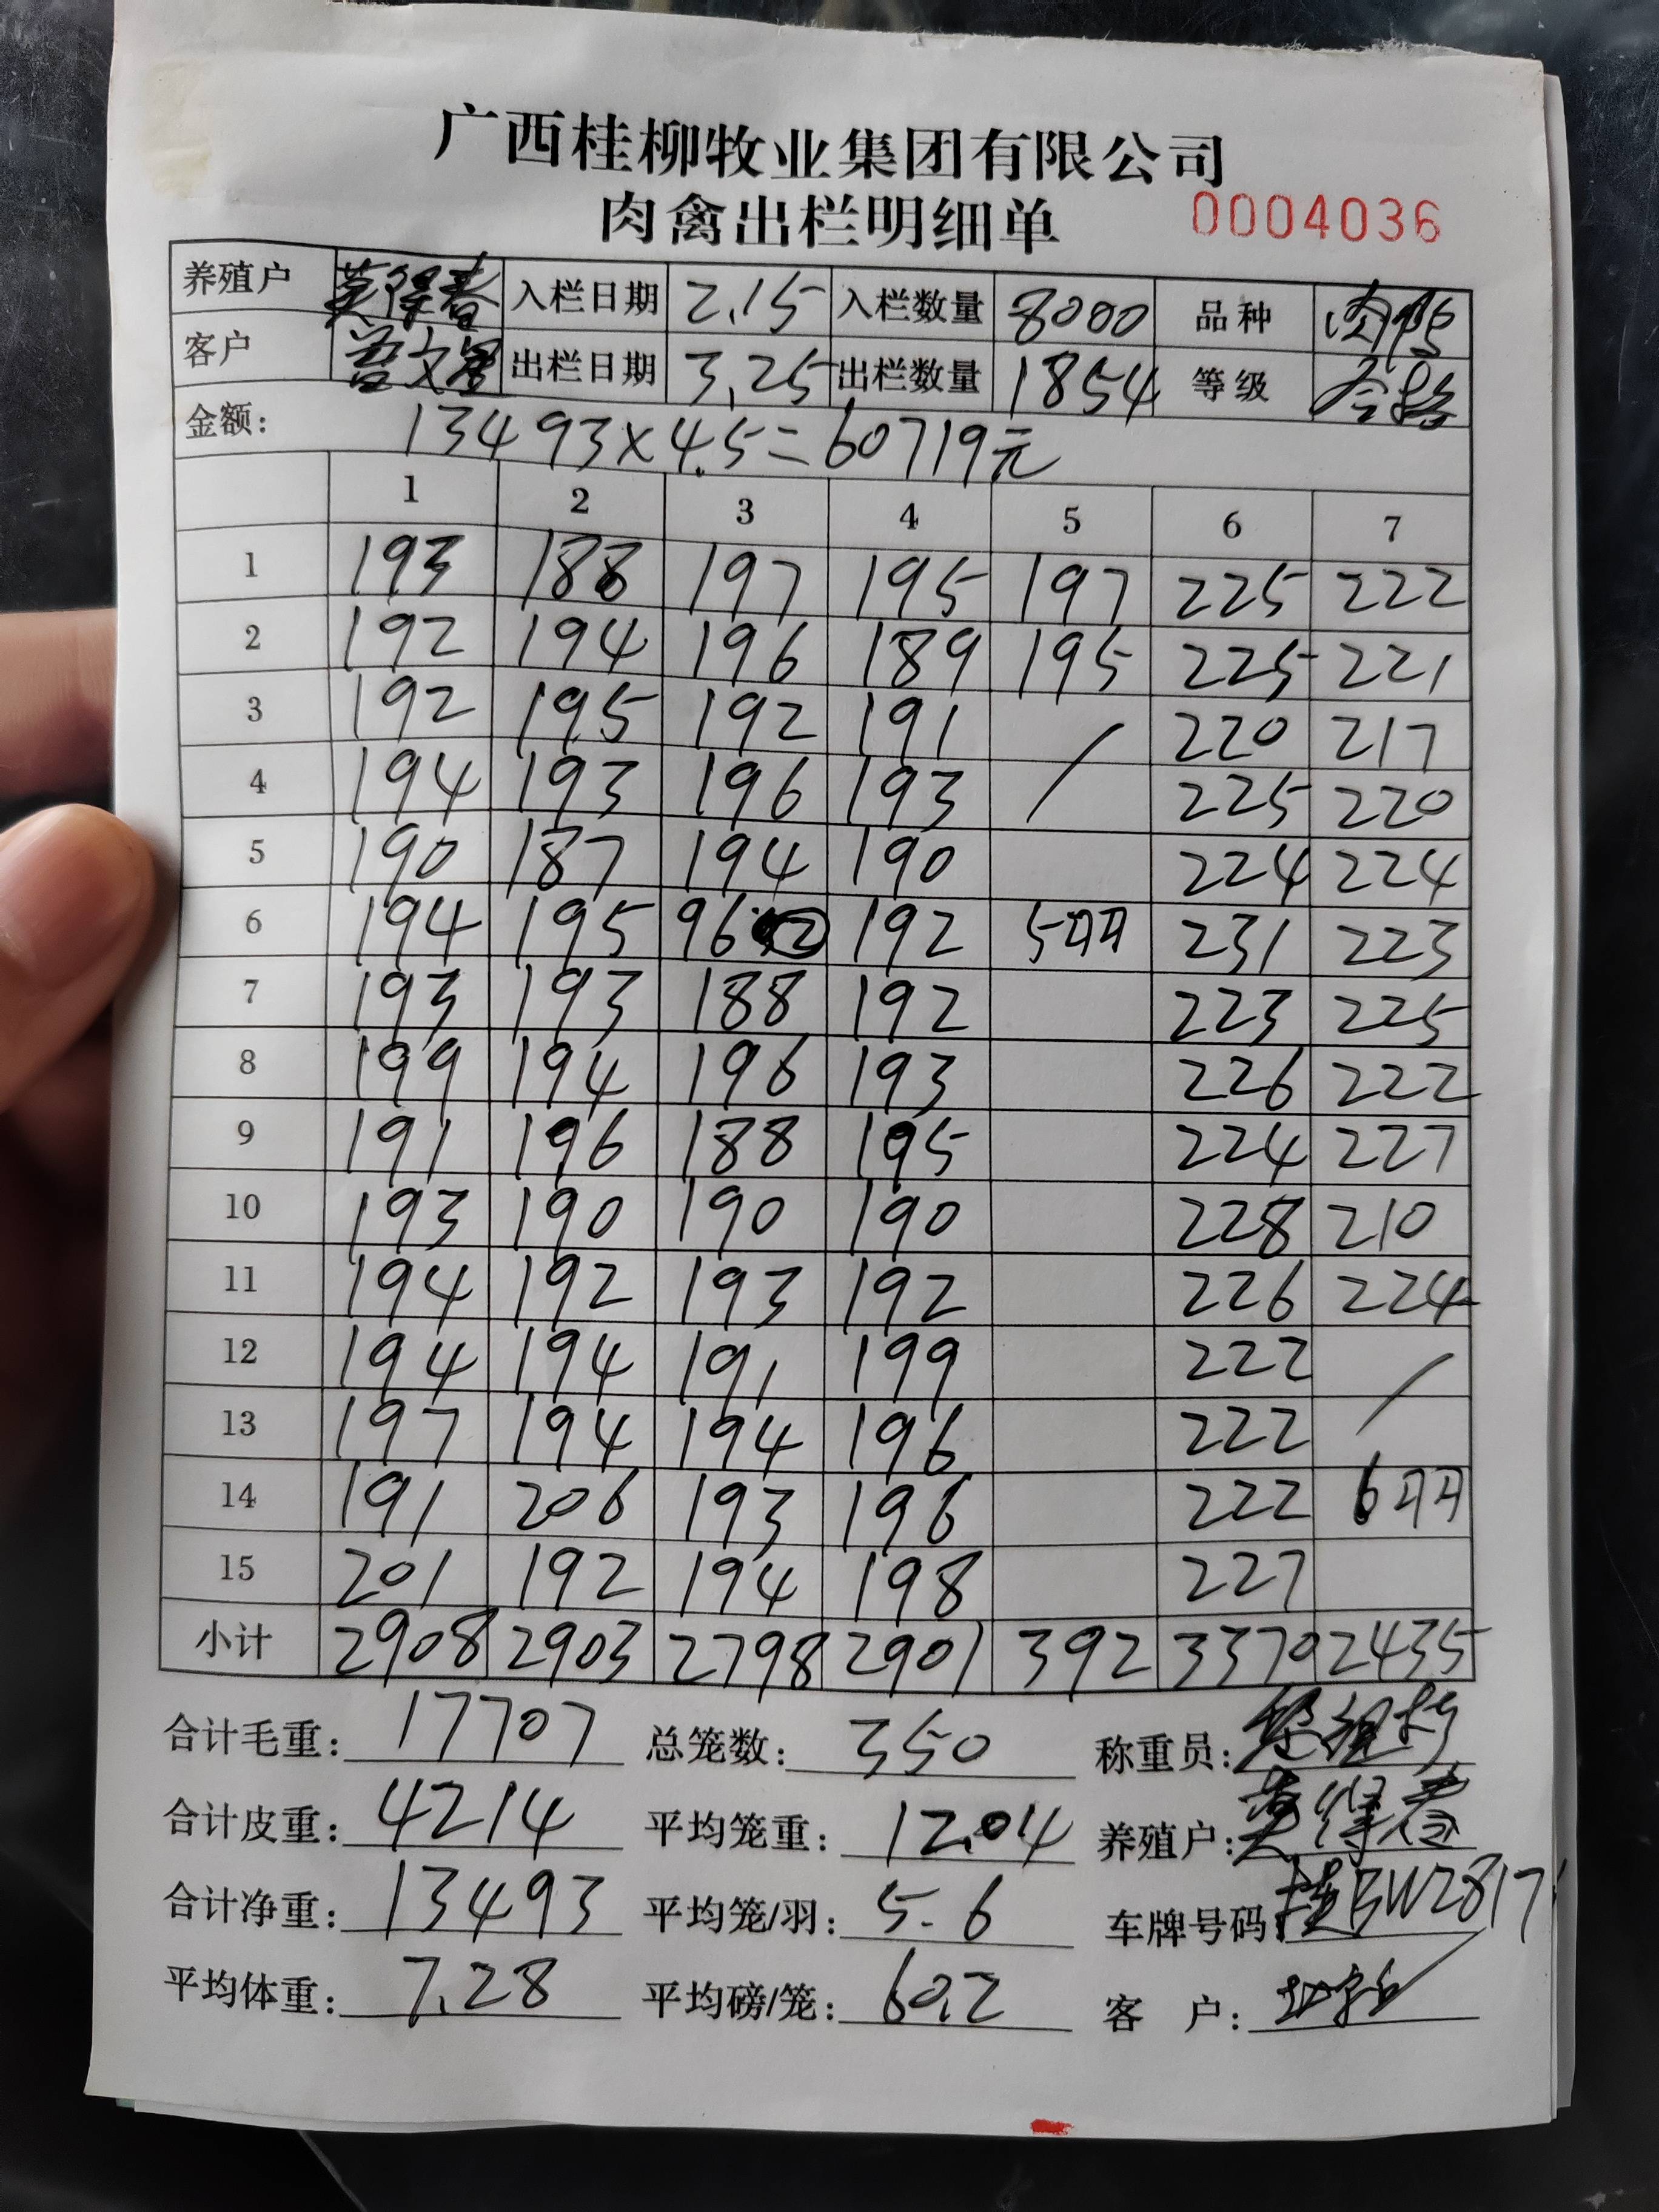 广西桂柳牧业集团有限公司
肉禽出栏明细单 0004036
养殖户 莫得春 入栏日期 2.15 入栏数量 8000 品种 肉鸭
客户 出栏日期 3.25 出栏数量 1854 等级 合格
金额: 13493×4.5=60719元
1 2 3 4 5 6 7
1 193 188 197 195 197 225 222
2 192 194 196 189 195 225 221
3 192 195 192 191 / 220 217
4 194 193 196 193 225 220
5 190 187 194 190 224 224
6 194 195 96 ② 192 5羽 231 223
7 193 193 188 192 223 225
8 199 194 196 193 226 222
9 191 196 188 195 224 227
10 193 190 190 190 228 210
11 194 192 193 192 226 224
12 194 194 191 199 222 /
13 197 194 194 196 222
14 191 206 193 196 222 6羽
15 201 192 194 198 227
小计 2908 2903 2798 2901 392 3370 2435
合计毛重: 17707 总笼数: 350 称重员:
合计皮重: 4214 平均笼重: 12.04 养殖户: 莫得春
合计净重: 13493 平均笼/羽: 5.6 车牌号码: 桂BW2817
平均体重: 7.28 平均磅/笼: 60.2 客 户: